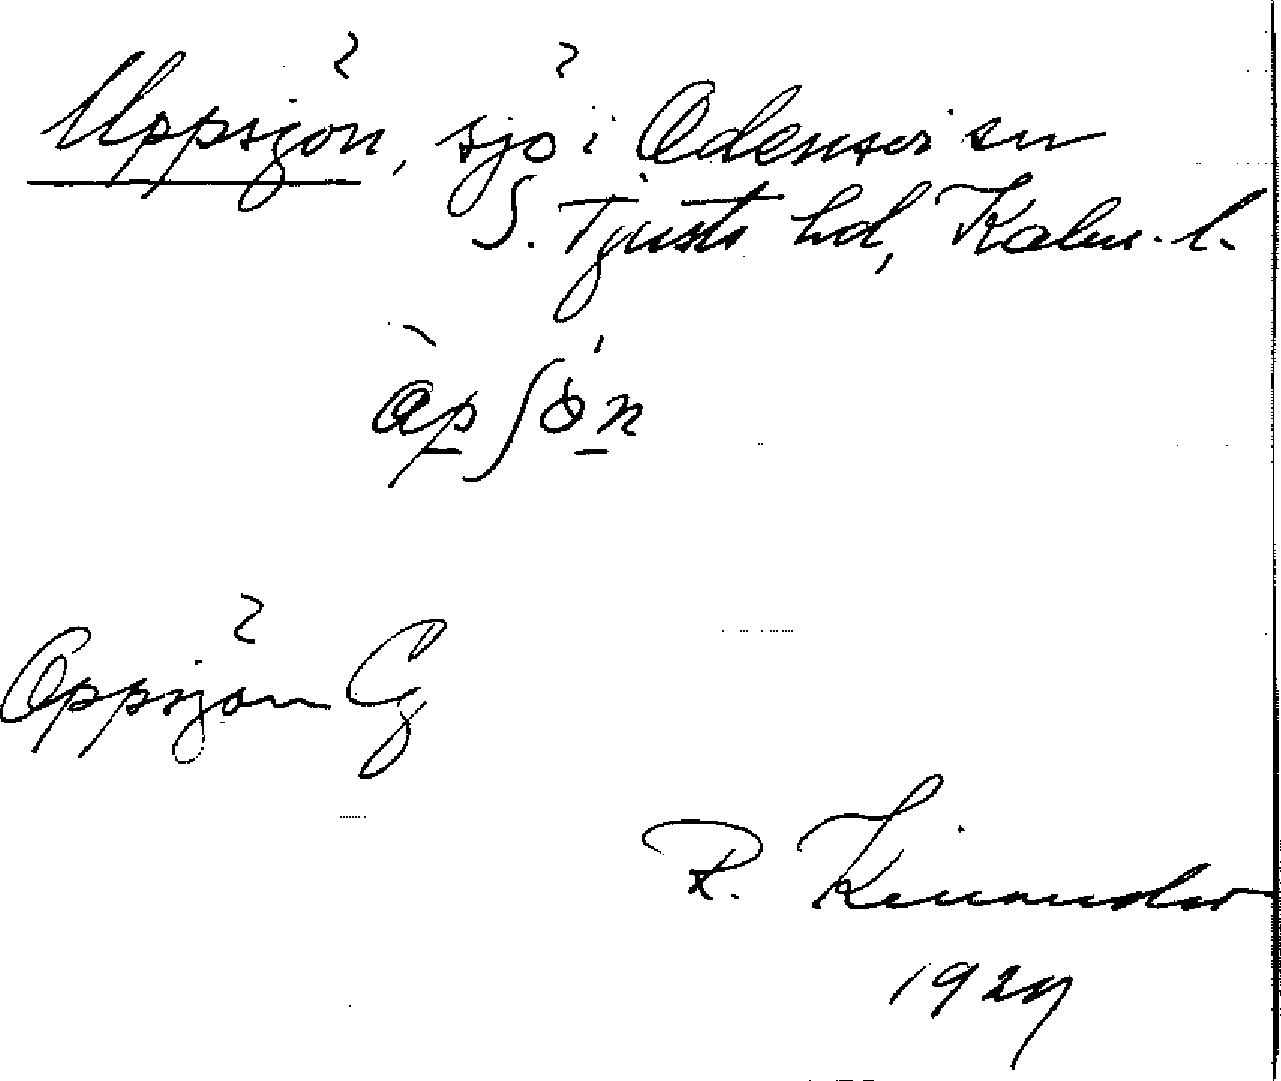 Uppsjön, sjö i Odensvi sn
S. Tjusts hd, Kalm. l.
àp ʃön
Oppsjön Cg
R. Kinander
1927